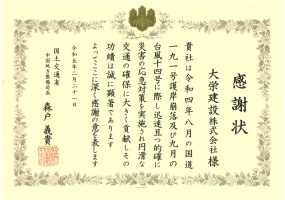 感謝状
大栄建設株式会社様
貴社は令和四年八月の国道
一九一号護岸崩落及び九月の
台風十四号に際し迅速且つ的確に
災害の応急対策を実施され円滑な
交通の確保に大きく貢献しその
功績は誠に顕著であります
よってここに深く感謝の意を表します
令和五年二月二十一日
国土交通省
中国地方整備局長
森戸義貴